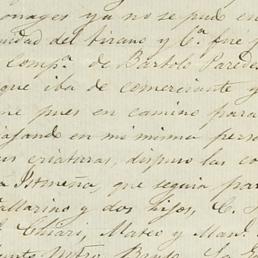 onages ya no se pudo en
uidad del tirano y Cª. fue f
Compª. de Bartolo Parede
que iba de comerciante y
ne pues en camino para
iajando en mi misma person
us criaturas, dispuso las co
a Istmeña, que seguia par
allarino y dos hijos, C. J
l Chiari, Mateo y Manl. J